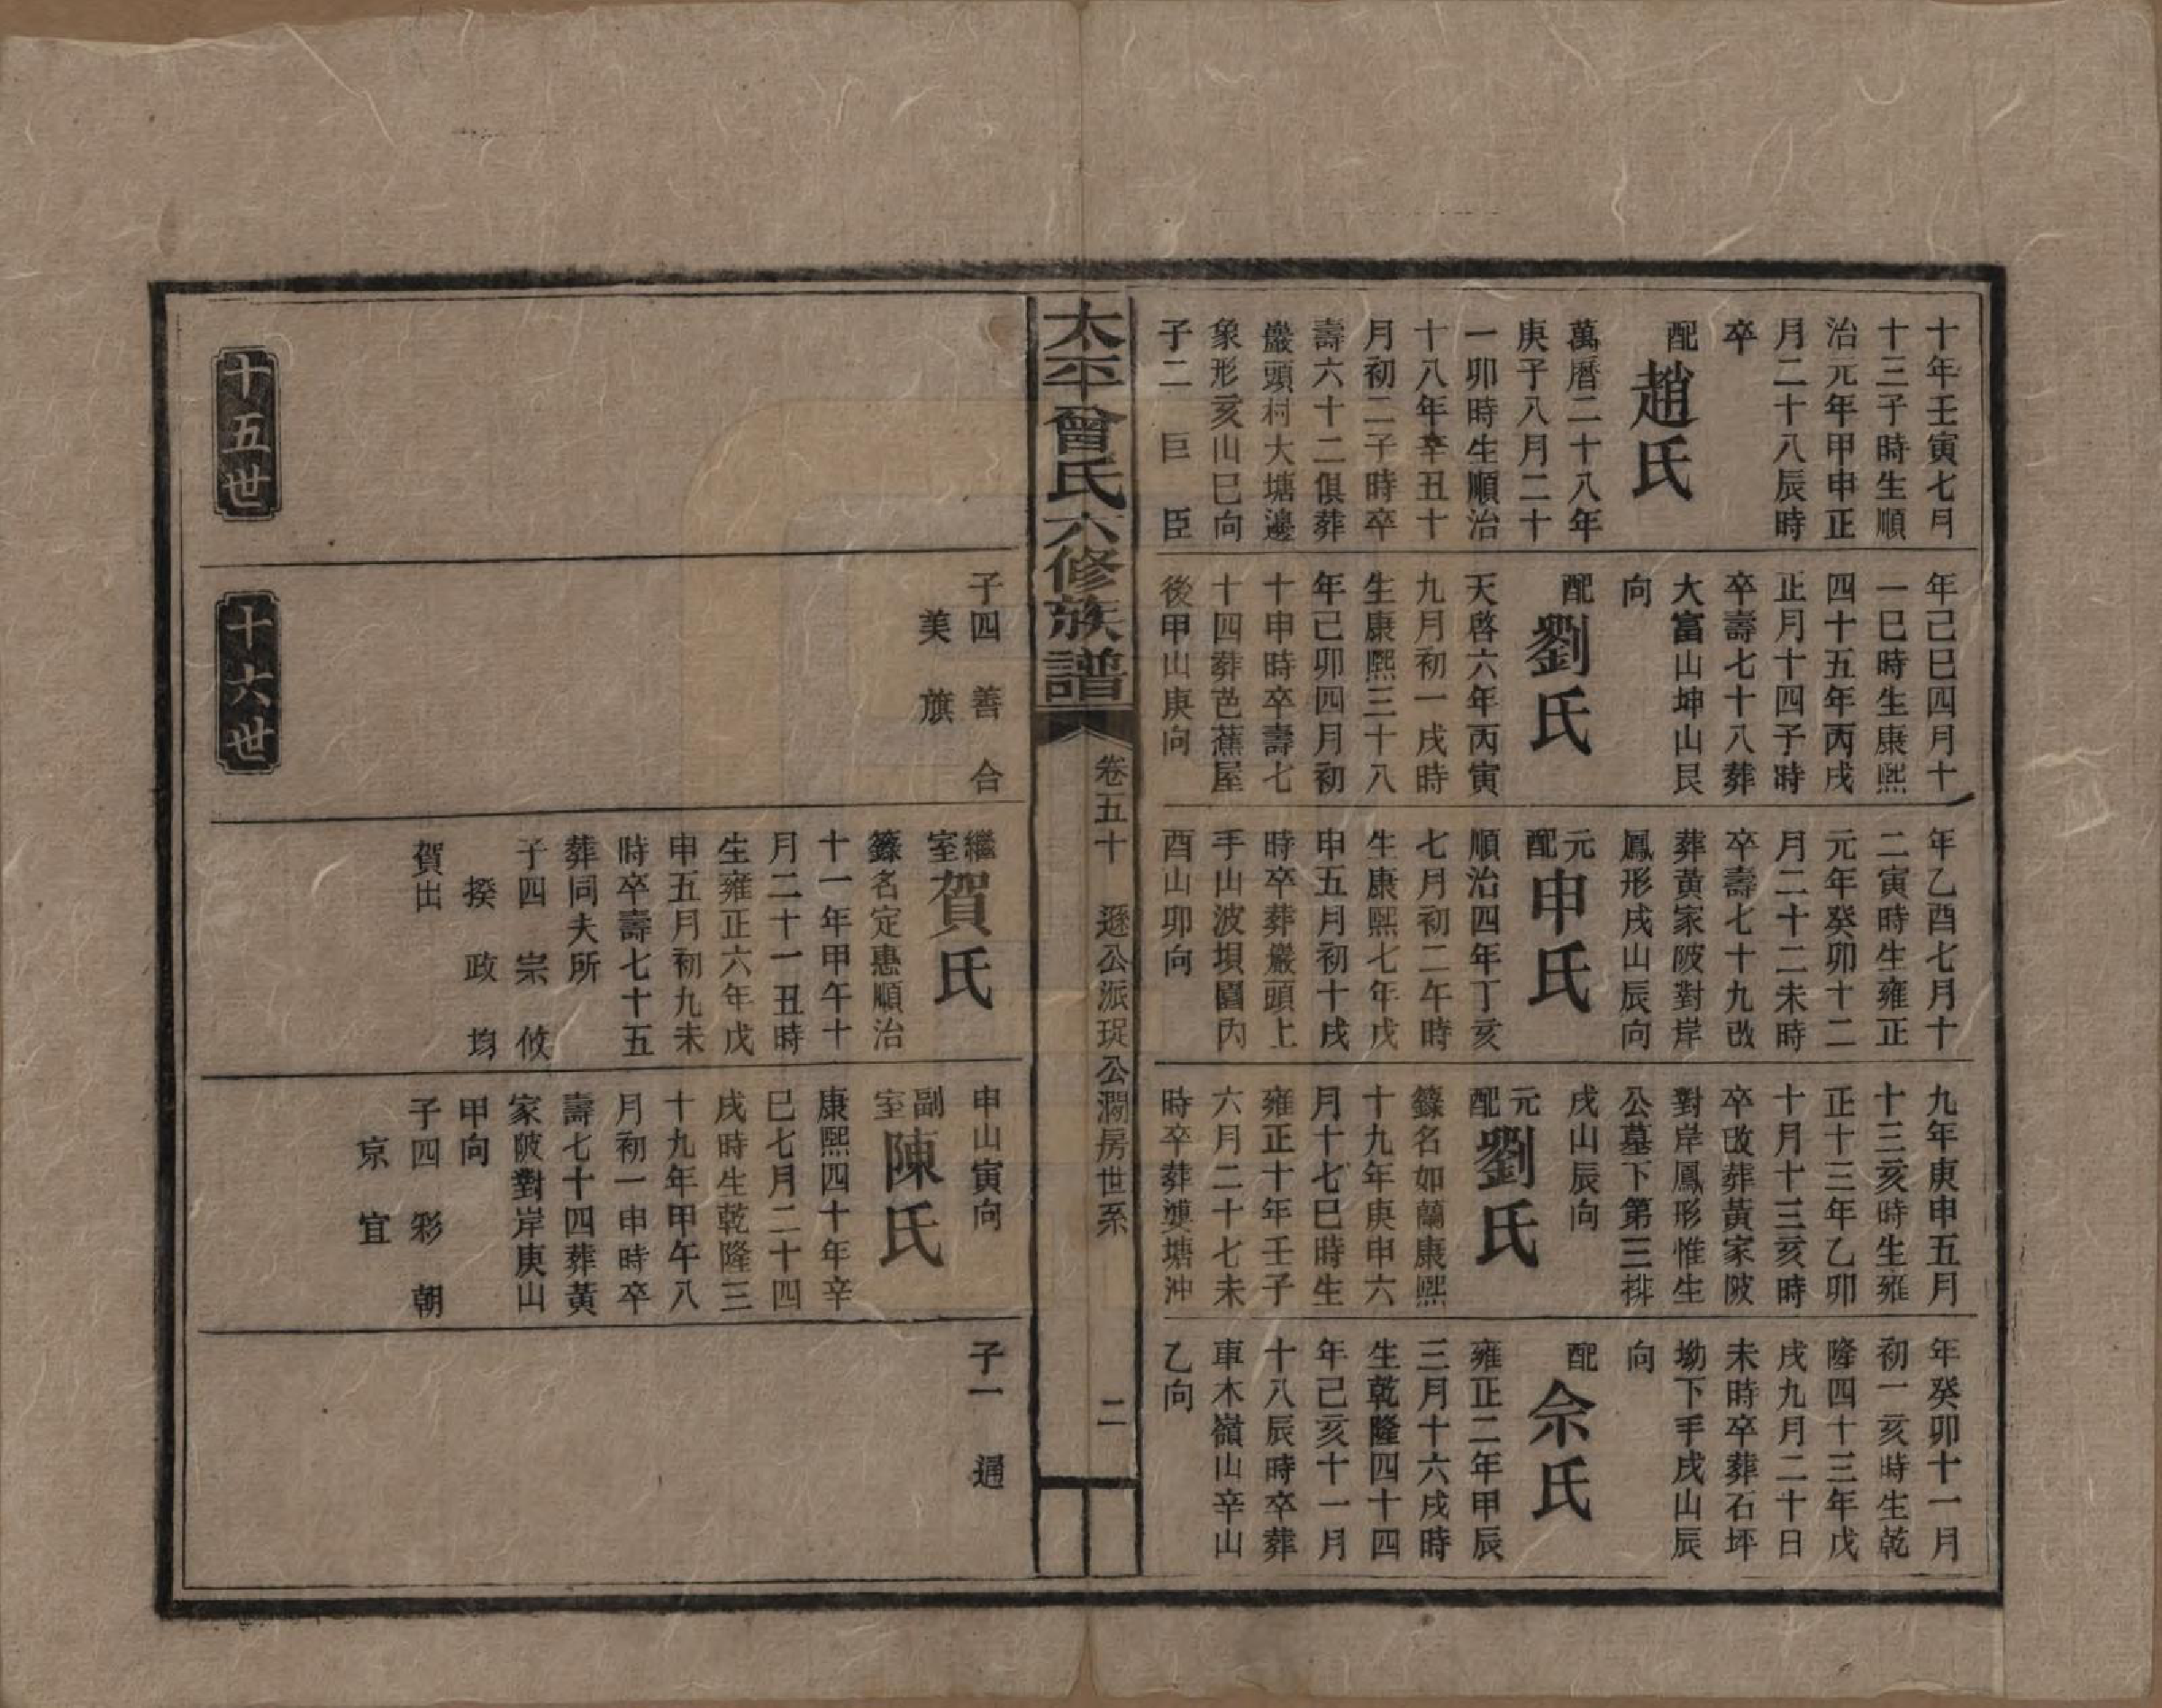 十年壬寅七月
十三子時生順
治元年甲申正
月二十八辰時
卒
配趙氏
萬曆二十八年
庚子八月二十
一卯時生順治
十八年辛丑十
月初二子時卒
壽六十二俱葬
巖頭村大塘邊
象形亥山巳向
子二 巨 臣
年己巳四月十
一巳時生康熙
四十五年丙戌
正月十四子時
卒壽七十八葬
大富山坤山艮
向
配劉氏
天啓六年丙寅
九月初一戌時
生康熙三十八
年己卯四月初
十申時卒壽七
十四葬芭蕉屋
後甲山庚向
年乙酉七月十
二寅時生雍正
元年癸卯十二
月二十二未時
卒壽七十九改
葬黃家陂對岸
鳳形戌山辰向
元配申氏
順治四年丁亥
七月初二午時
生康熙七年戊
申五月初十戌
時卒葬巖頭上
手山波垻園內
酉山卯向
九年庚申五月
十三亥時生雍
正十三年乙卯
十月十三亥時
卒改葬黃家陂
對岸鳳形惟生
公墓下第三排
戌山辰向
元配劉氏
籙名如蘭康熙
十九年庚申六
月十七巳時生
雍正十年壬子
六月二十七未
時卒葬塘沖
年癸卯十一月
初一亥時生乾
隆四十三年戊
戌九月二十日
未時卒葬石坪
坳下手戌山辰
向
配佘氏
雍正二年甲辰
三月十六戌時
生乾隆四十四
年己亥十一月
十八辰時卒葬
車木嶺山辛山
乙向
太平曾氏六修族譜
卷五十 遜公派珽公瀾房世系 二
子四 善 合
美 旗
繼室賀氏
籙名定惠順治
十一年甲午十
月二十一丑時
生雍正六年戊
申五月初九未
時卒壽七十五
葬同夫所
子四 宗 攸
揆 政 均
賀出
申山寅向
副室陳氏
康熙四十年辛
巳七月二十四
戌時生乾隆三
十九年甲午八
月初一申時卒
壽七十四葬黃
家陂對岸庚山
甲向
子四 彩 朝
京 宜
子一 通
十五世
十六世